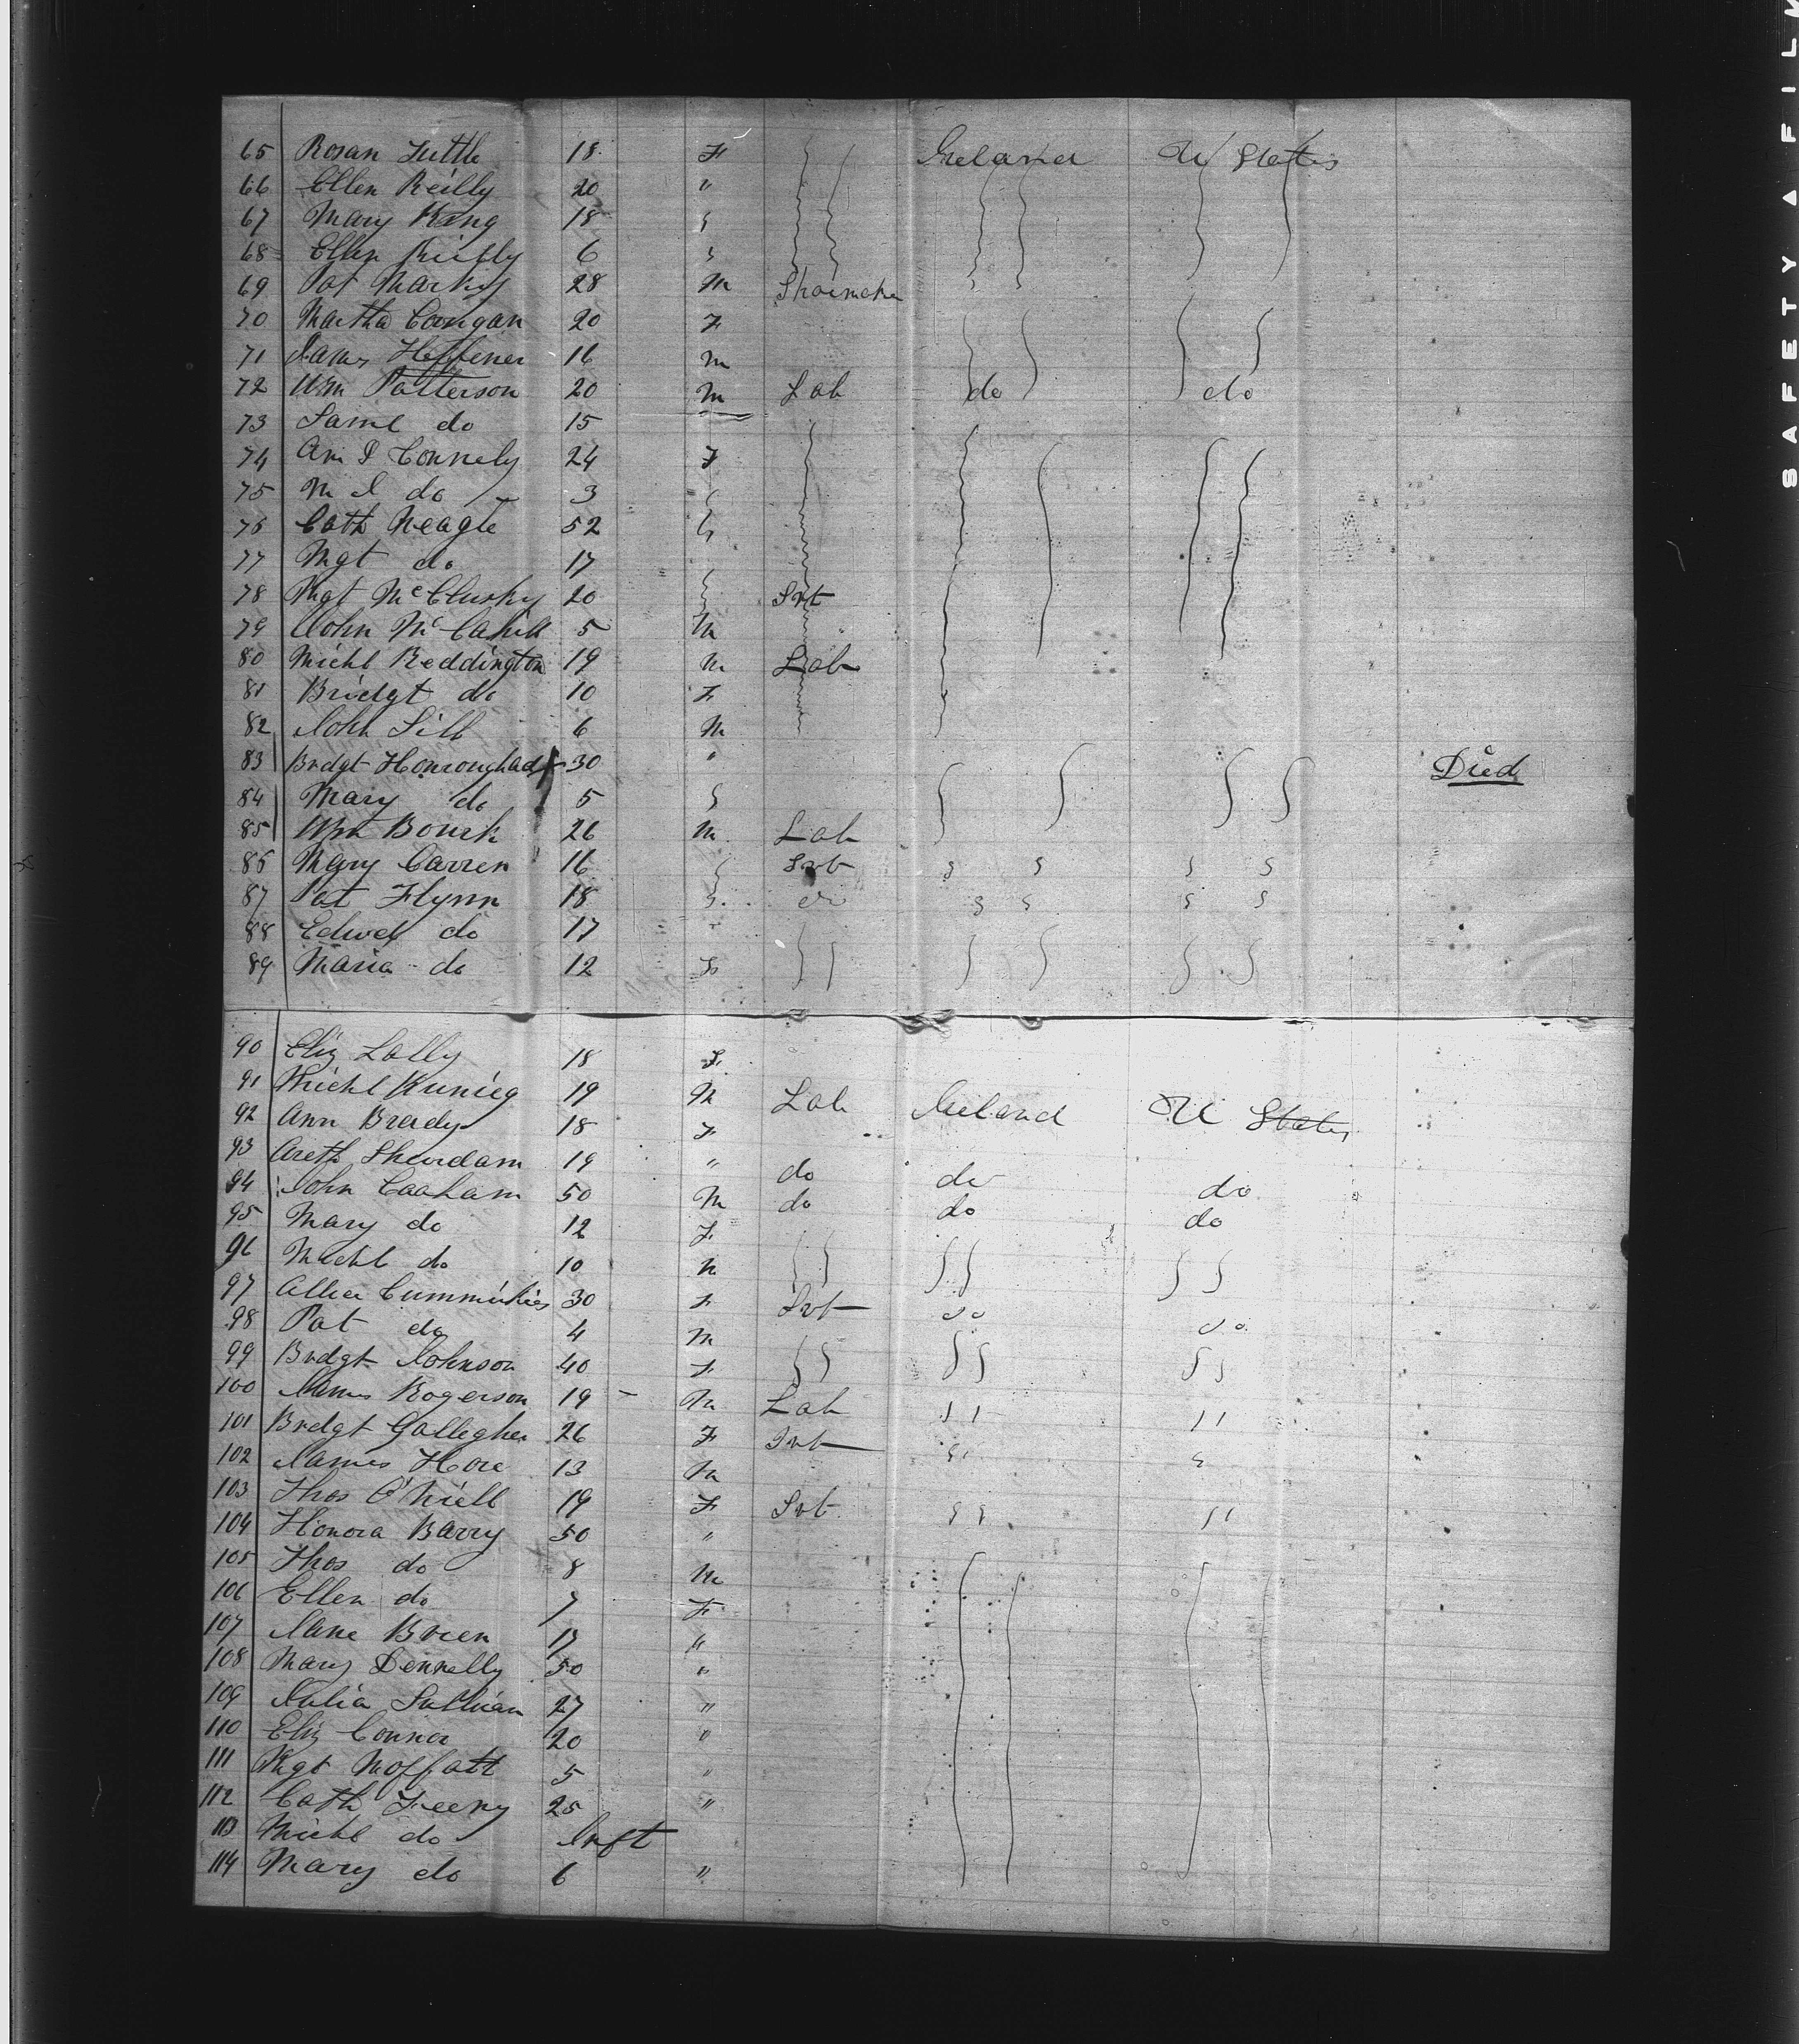 65 Rosan Tuttle 18 F Ireland U States
66 Ellen Reilly 20 "
67 Mary King 18
68 Ellen Reilly 6
69 Pat 28 M Shoemaker
70 Martha Corrigan 20 F
71 James Heffener 16 M
72 Wm Patterson 20 M Lab do do
73 Saml do 15
74 Connely 24 F
75 do 3
76 Cath Neagle 52
77 Mgt do 17
78 Mgt McClusky 20 Svt
79 John McCahill 5 M
80 Michl Reddington 19 M Lab
81 Bridgt do 10 F
82 John 6 M
83 Brdgt 30 " Died
84 Mary do 5
85 Wm Bourk 26 M Lab
86 Mary Carren 16 Svt
87 Pat Flynn 18 do
88 Edwd do 17
89 Maria do 12 F
90 Eliz Lally 18 F
91 Michl 19 M Lab Ireland U States
92 Ann Brady 18 F
93 19 " do do do
94 John 50 M do do do
95 Mary do 12 F
96 Michl do 10 M
97 30 F Svt do do
98 Pat do 4 M
99 Brdgt Johnson 40 F
100 James Rogerson 19 M Lab
101 Brdgt Gallegher 26 F Svt
102 James Hore 13 M
103 Thos O'Niell 19 F Svt
104 Honora Barry 50 "
105 Thos do 8 M
106 Ellen do 7 F
107 Jane Brien 17 "
108 Mary Dennelly 50 "
109 Julia Sullivan 27 "
110 Eliz Connor 20 "
111 Mgt Moffatt 5 "
112 Cath Feeny 25 "
113 Michl do Inft
114 Mary do 6 "
SAFETY A FILM